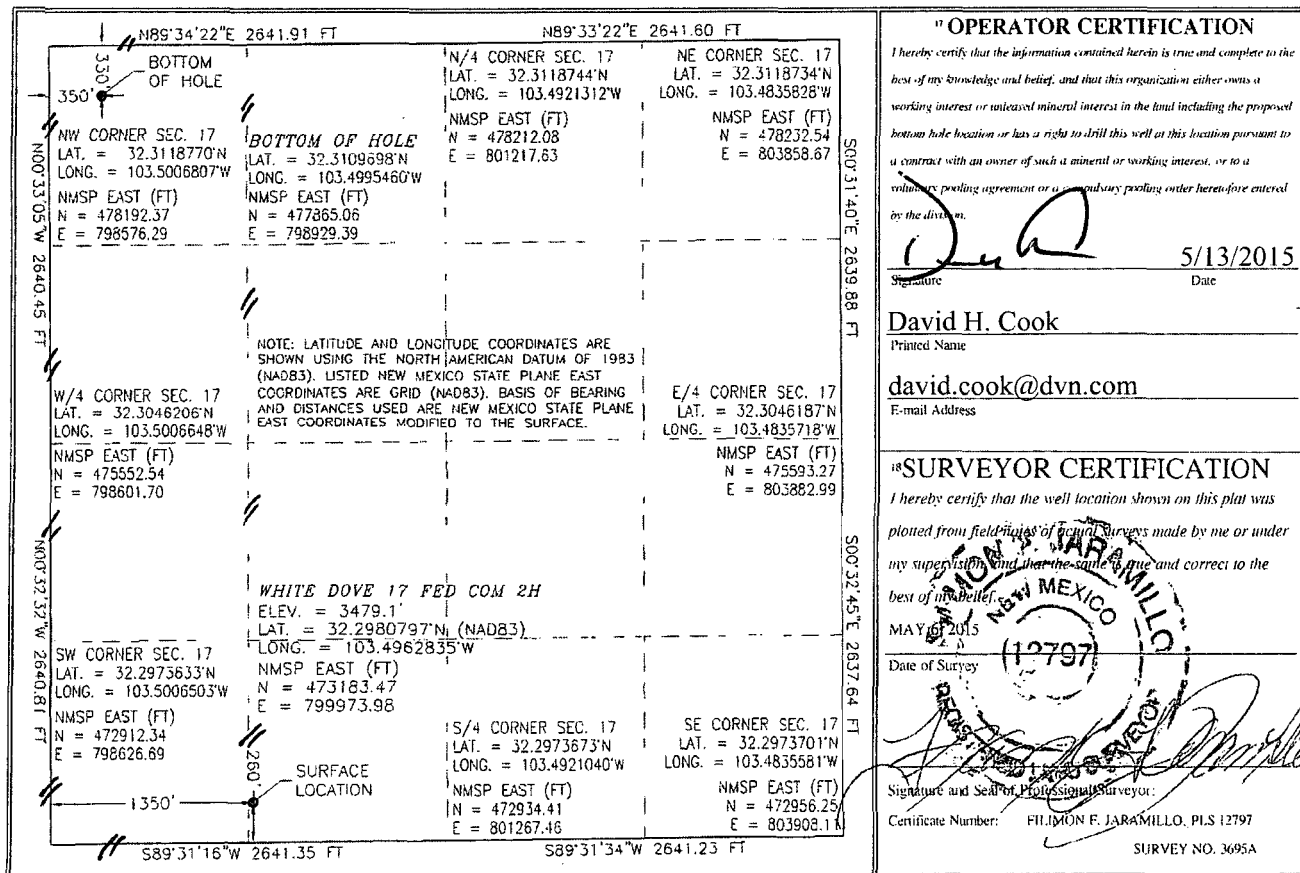 N89°34'22"E 2641.91 FT
N89°33'22"E 2641.60 FT
330'
BOTTOM
OF HOLE
350'
N/4 CORNER SEC. 17
LAT. = 32.3118744°N
LONG. = 103.4921312°W
NMSP EAST (FT)
N = 478212.08
E = 801217.63
NE CORNER SEC. 17
LAT. = 32.3118734°N
LONG. = 103.4835828°W
NMSP EAST (FT)
N = 478232.54
E = 803858.67
NW CORNER SEC. 17
LAT. = 32.3118770°N
LONG. = 103.5006807°W
NMSP EAST (FT)
N = 478192.37
E = 798576.29
BOTTOM OF HOLE
LAT. = 32.3109698°N
LONG. = 103.4995460°W
NMSP EAST (FT)
N = 477865.06
E = 798929.39
N00°33'05"W 2640.45 FT
S00°31'40"E 2639.88 FT
NOTE: LATITUDE AND LONGITUDE COORDINATES ARE
SHOWN USING THE NORTH AMERICAN DATUM OF 1983
(NAD83). LISTED NEW MEXICO STATE PLANE EAST
COORDINATES ARE GRID (NAD83). BASIS OF BEARING
AND DISTANCES USED ARE NEW MEXICO STATE PLANE
EAST COORDINATES MODIFIED TO THE SURFACE.
W/4 CORNER SEC. 17
LAT. = 32.3046206°N
LONG. = 103.5006648°W
NMSP EAST (FT)
N = 475552.54
E = 798601.70
E/4 CORNER SEC. 17
LAT. = 32.3046187°N
LONG. = 103.4835718°W
NMSP EAST (FT)
N = 475593.27
E = 803882.99
N00°32'32"W 2640.81 FT
S00°32'45"E 2637.64 FT
WHITE DOVE 17 FED COM 2H
ELEV. = 3479.1'
LAT. = 32.2980797°N (NAD83)
LONG. = 103.4962835°W
NMSP EAST (FT)
N = 473183.47
E = 799973.98
SW CORNER SEC. 17
LAT. = 32.2973633°N
LONG. = 103.5006503°W
NMSP EAST (FT)
N = 472912.34
E = 798626.69
S/4 CORNER SEC. 17
LAT. = 32.2973673°N
LONG. = 103.4921040°W
NMSP EAST (FT)
N = 472934.41
E = 801267.46
SE CORNER SEC. 17
LAT. = 32.2973701°N
LONG. = 103.4835581°W
NMSP EAST (FT)
N = 472956.25
E = 803908.11
260'
SURFACE
LOCATION
1350'
S89°31'16"W 2641.35 FT
S89°31'34"W 2641.23 FT
17 OPERATOR CERTIFICATION
I hereby certify that the information contained herein is true and complete to the
best of my knowledge and belief, and that this organization either owns a
working interest or unleased mineral interest in the land including the proposed
bottom hole location or has a right to drill this well at this location pursuant to
a contract with an owner of such a mineral or working interest, or to a
voluntary pooling agreement or a compulsory pooling order heretofore entered
by the division.
5/13/2015
Signature Date
David H. Cook
Printed Name
david.cook@dvn.com
E-mail Address
18 SURVEYOR CERTIFICATION
I hereby certify that the well location shown on this plat was
plotted from field notes of actual surveys made by me or under
my supervision, and that the same is true and correct to the
best of my belief.
MAY 6, 2015
Date of Survey
FILIMON F. JARAMILLO
NEW MEXICO
12797
Signature and Seal of Professional Surveyor:
Certificate Number: FILIMON F. JARAMILLO, PLS 12797
SURVEY NO. 3695A